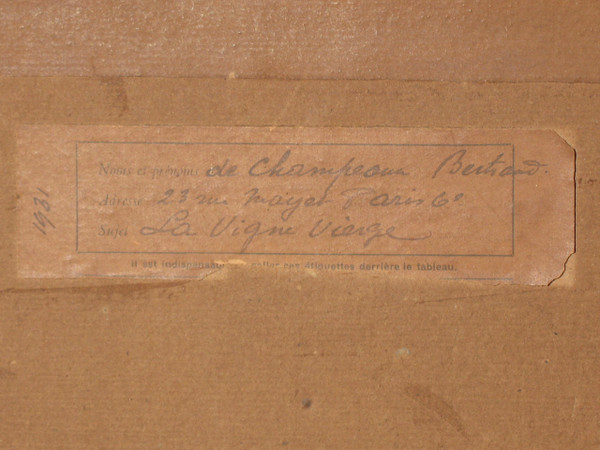 Noms et prénoms de Champeaux Bertrand.
Adresse 23 rue Mayet Paris 6e
Sujet La Vigne Vierge
Il est indispensable de coller ces étiquettes derrière le tableau.
1931